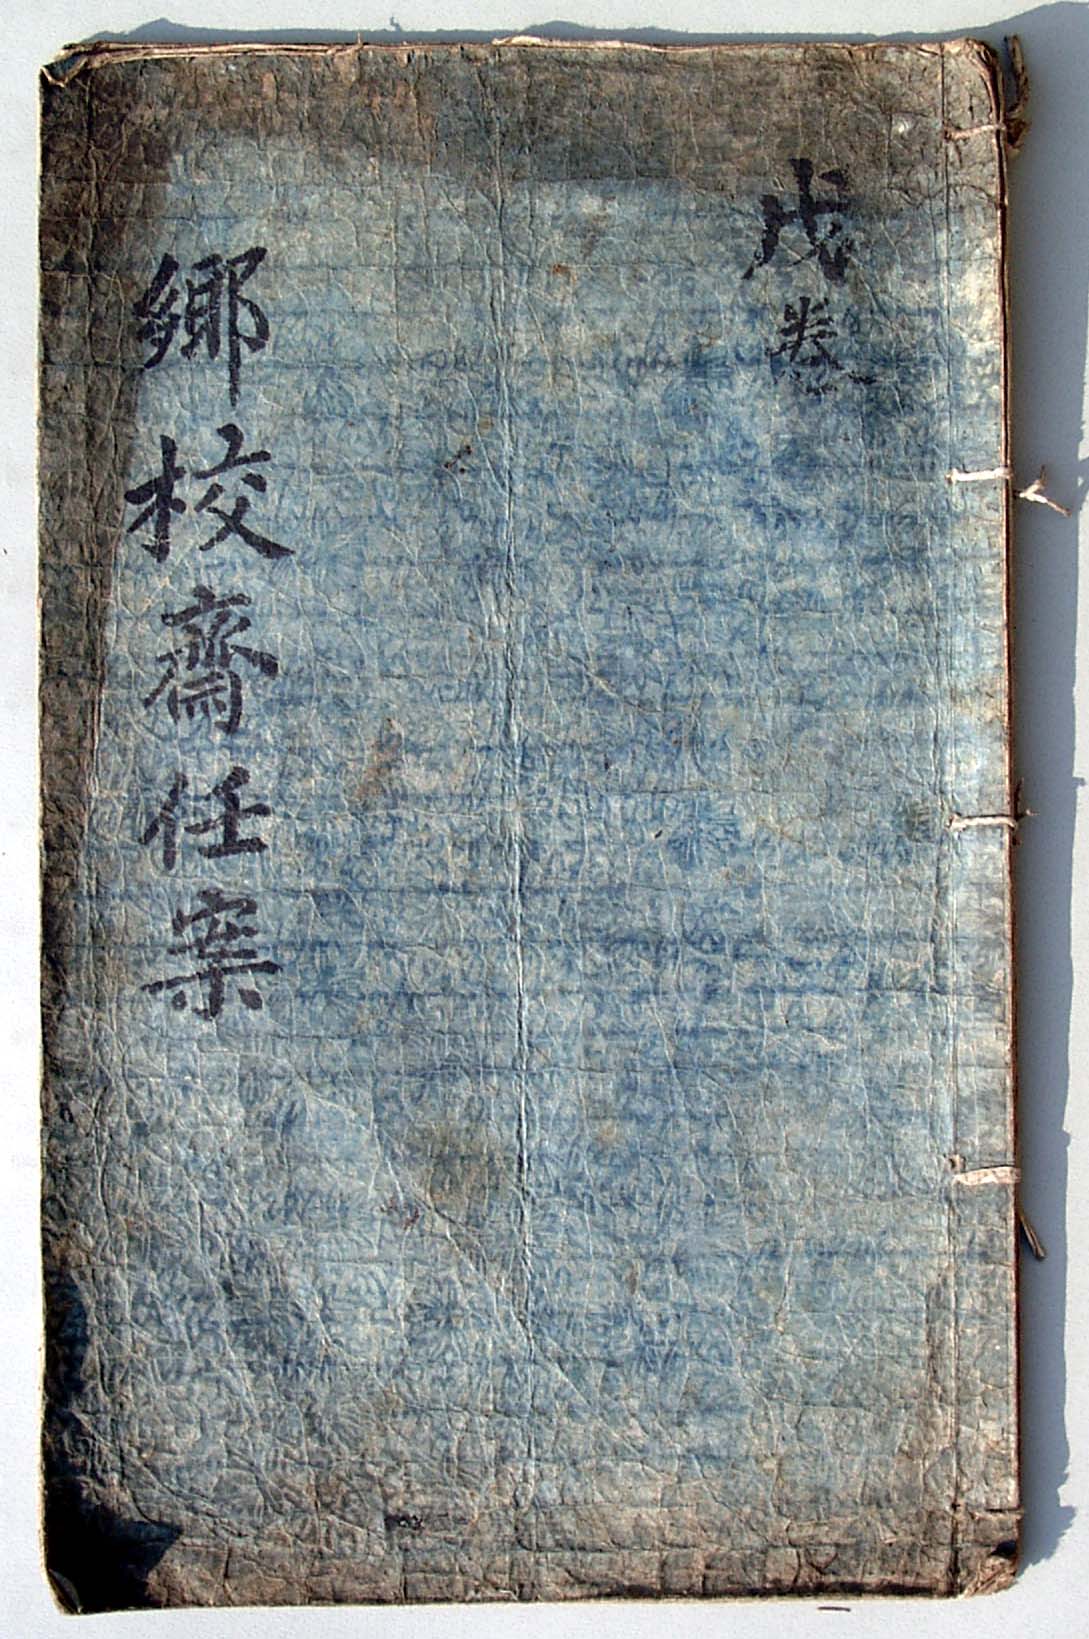 戊卷
鄉校齋任案